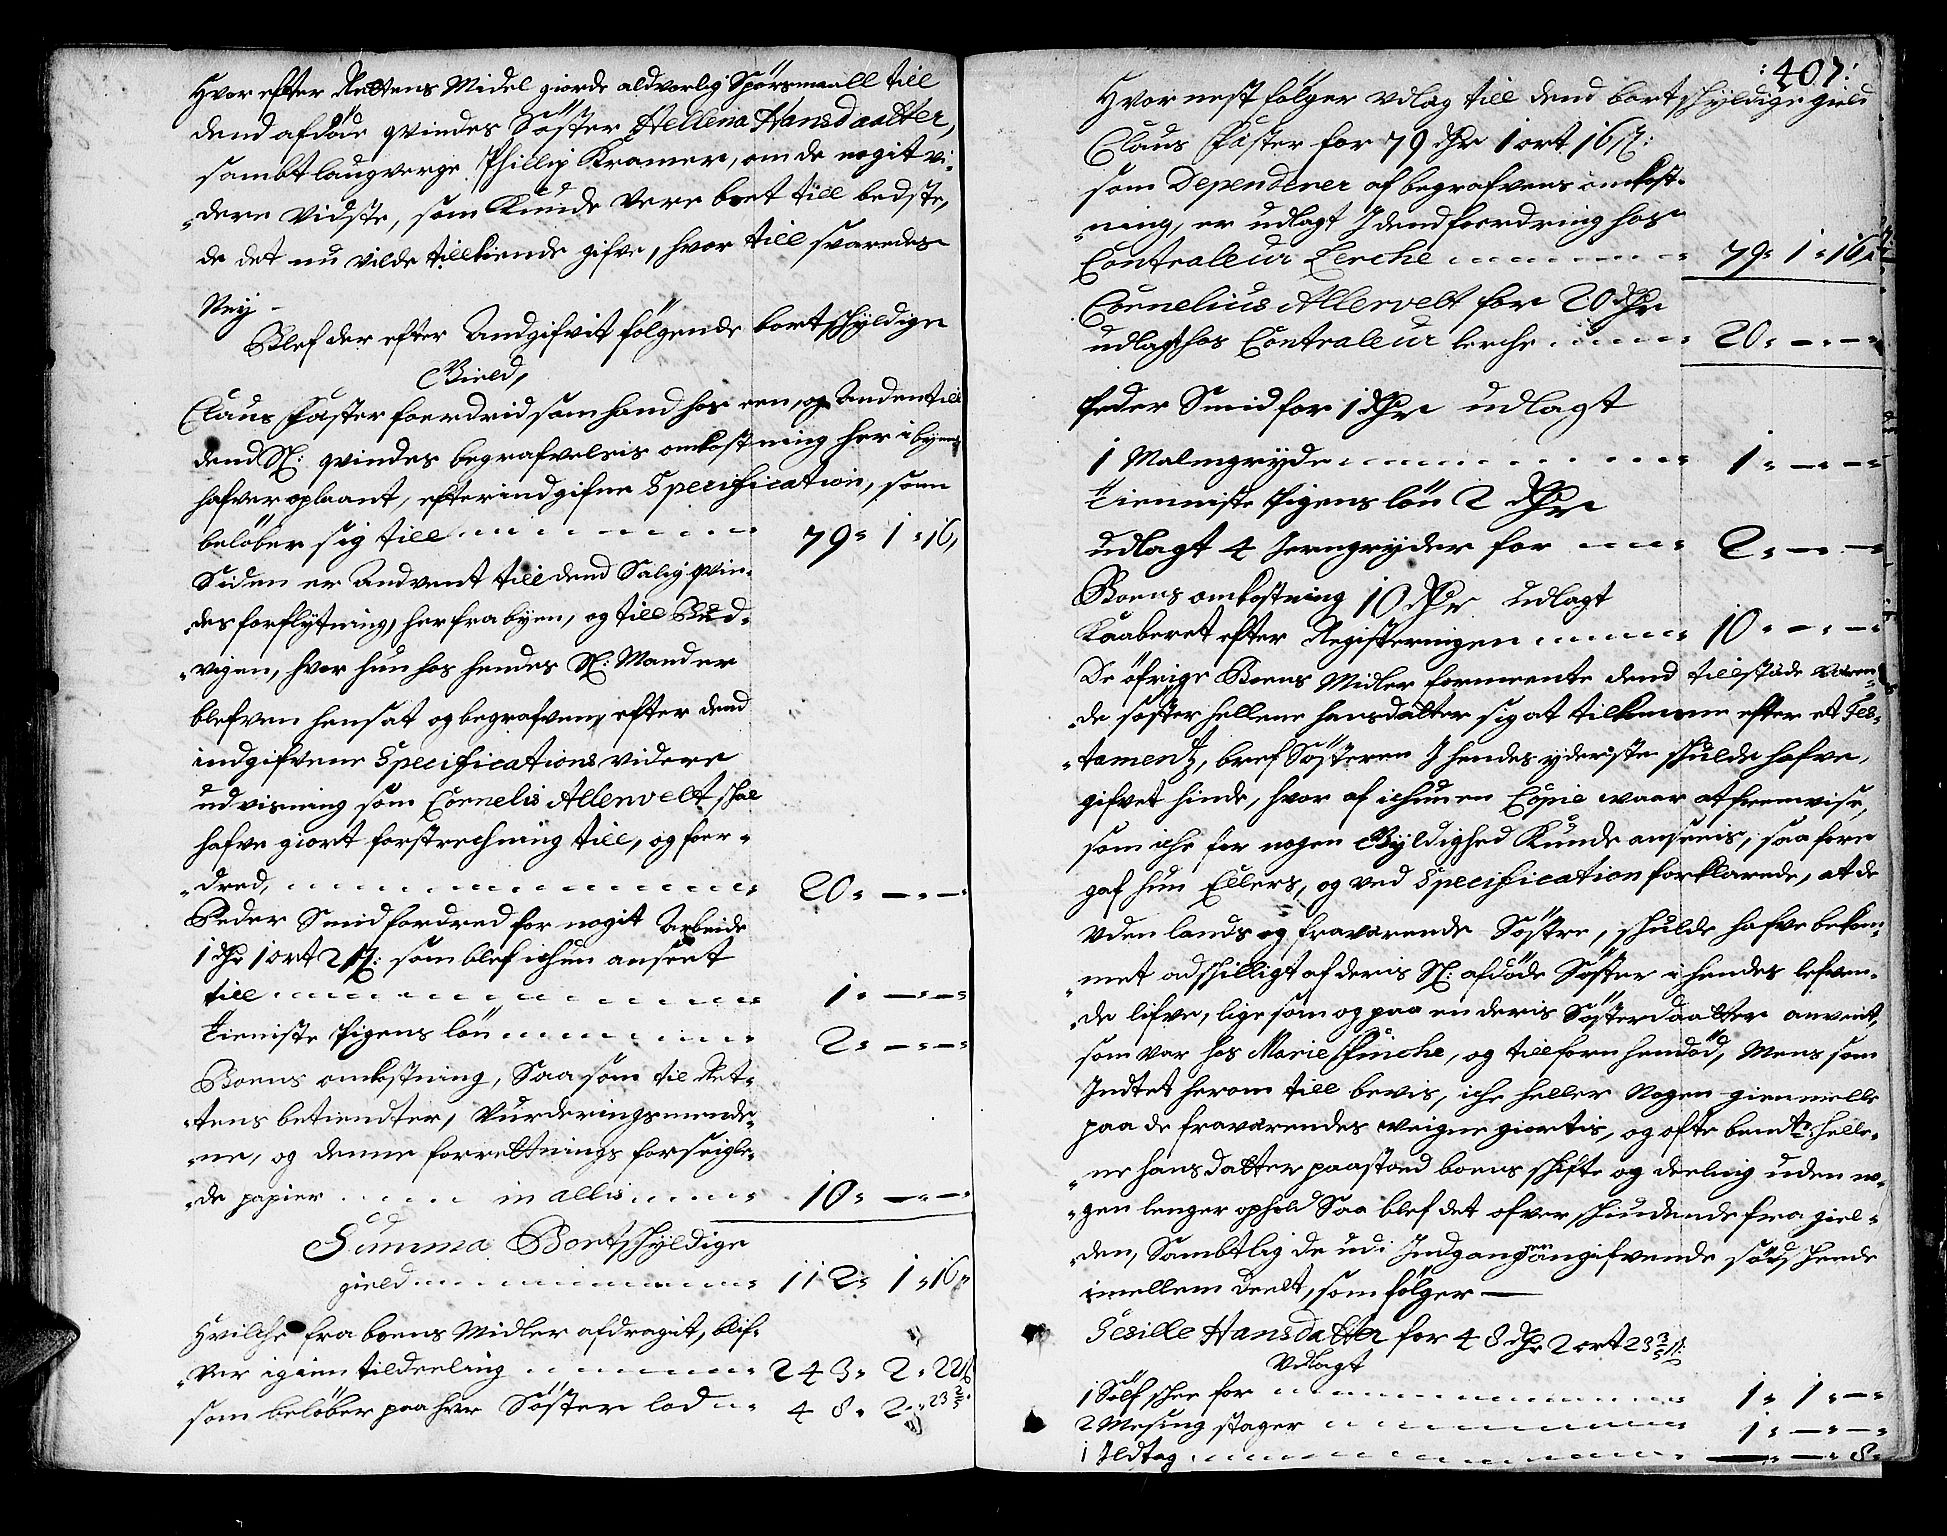 Hvor efter Rettens Midel giorde aldvorlig Spörsmaall till
dend afdöde qvindes Söster Hellena Hansdaatter,
sambt laugverge Phillip Kramer, om de nogit vi-
dere vidste, som kunde vere boet till bedste,
de det nu vilde tillkiende gifve, hvor till svaredes
Ney -
Blef der efter Andgifvit fölgende bortschyldige
Gield,
Claus Päster foerdrid som hand hos een, og Anden till
dend Sl: qvindes begrafvelsis omkostning her i byen
hafver oplaant, efter indgifne Specification, som
belöber sig till 79 - 1 - 16,
Siden er Andvent till dend Salig qvin-
des forflytning, her fra byen, og till Bud-
vigen, hvor hun hos hendes Sl: Mand er
blefven hensat og begrafven, efter dend
indgifvene Specifications videre
udvisning som Cornelis Allervelt schal
hafve giort forstrechning till, og foer-
dred, 20 - — - —
Peder Smid fordred for nogit Arbeide
1 dlr 1 ort 2 sl: som blef ichun anseet
till 1 - — - —
tieniste Pigens lön 2 - — - —
Boens omkostning, Saa som til Ret-
tens betiendter, Vurderingsmende-
ne, og denne forrettnings forseigle-
de papier in allis 10 - — - —
Summa Bortschyldige
gield 112 - 1 - 16
Hvilche fra boens Midler afdragit, blif-
ver igien til deeling 243 - 2 - 22
som belöber paa hver Söster lod 48 - 2 - 23 3/5
: 407 :
Hvor nest fölger Udlag till dend bortschyldige gield
Claus Päster for 79 dlr 1 ort 16 sl:
som Dependerer af begrafvens omkost-
ning, er udlagt I dend foerdring hos
Contraleur Lerche 79 - 1 - 16
Cornelius Allervelt for 20 dlr
udlagt hos Contraleur Lerche 20 - — - —
Peder Smid for 1 dlr udlagt
1 Malmgryde 1 - — - —
tienniste Pigens lön 2 dlr
udlagt 4 Jerngryder for 2 - — - —
Boens omkostning 10 dlr udlagt
Kaaberet efter Registeringen 10 - — - —
De öfrige Boens Midler formeente dend tillstæde væren-
de söster Hellene hansdatter sig at tilkomme efter et Tes-
tamentz, bref Sösteren I hendes yderste schulde hafve,
gifvet hinde, hvor af ichun en Copie waar at fremvise,
som iche for nogen Gyldighed Kunde ansees, saa fore
gaf hun Ellers, og ved Specification forklarede, at de
Uden lands og fraværende Söstre, schulde hafve bekom-
met adschilligt af deris Sl: afdöde Söster i hendes lefven-
de lifve, lige som og paa en deris Sösterdaatter anvent,
som var hos Marie Finche, og tillforn hendöd, Mens som
Indtet herom till bevis, iche heller Nogen giennelle
paa de fraværendes weigne giortis, og ofte bemte: Helle-
ne hansdatter paastoed boens schifte og deeling uden no-
gen lenger ophold Saa blef det ofver schiudende fra giel-
den, Sambtlig de udi Indgangen angifvende södschende
imellem deelt, som fölger —
Sesille Hansdatter for 48 dlr 2 ort 23 3/5 sl:
Udlagt
1 Sölf schee for 1 - 1 - —
2 Mesing stager 1 - — - —
1 Ildtag — - — - 8 -